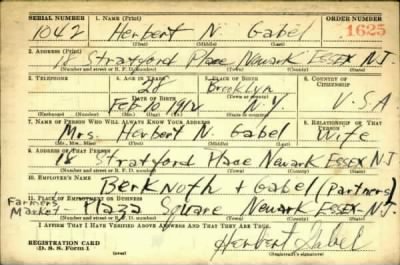 SERIAL NUMBER 1. NAME (Print) ORDER NUMBER
1042 Herbert N. Gabel 1625
(First) (Middle) (Last)
2. ADDRESS (Print)
18 Stratford Place Newark Essex N.J.
(Number and street or R. F. D. number) (Town) (County) (State)
3. TELEPHONE 4. AGE IN YEARS 5. PLACE OF BIRTH 6. COUNTRY OF CITIZENSHIP
28 Brooklyn
DATE OF BIRTH (Town or county)
Feb. 10 1912 N.Y. U.S.A
(Mo.) (Day) (Yr.) (State or country)
7. NAME OF PERSON WHO WILL ALWAYS KNOW YOUR ADDRESS 8. RELATIONSHIP OF THAT PERSON
Mrs. Herbert N. Gabel Wife
(Mr., Mrs., Miss) (First) (Middle) (Last)
9. ADDRESS OF THAT PERSON
18 Stratford Place Newark Essex N.J
(Number and street or R. F. D. number) (Town) (County) (State)
10. EMPLOYER'S NAME
Berknoth + Gabel (Partners)
11. PLACE OF EMPLOYMENT OR BUSINESS
Farmers Market - Plaza Square Newark Essex N.J.
(Number and street or R. F. D. number) (Town) (County) (State)
I AFFIRM THAT I HAVE VERIFIED ABOVE ANSWERS AND THAT THEY ARE TRUE.
REGISTRATION CARD
D. S. S. Form 1 (over) Herbert Gabel
(Registrant's signature)